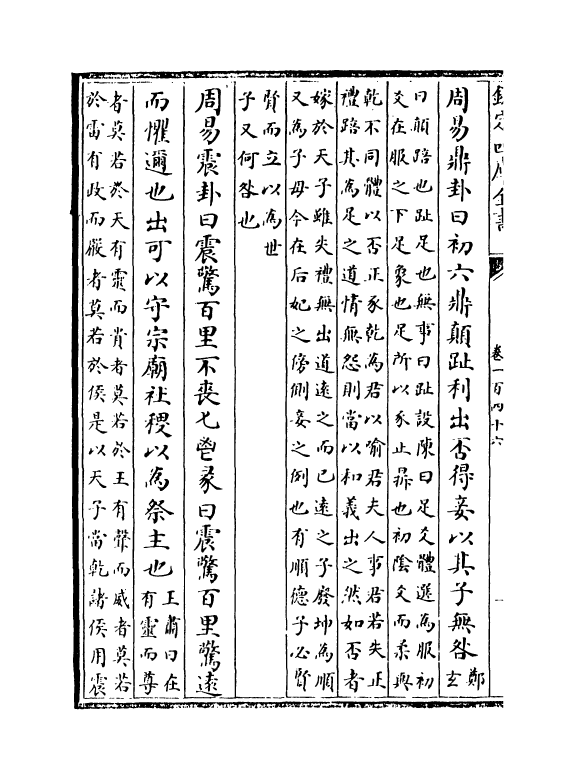 欽定四庫全書
卷一百四十六
周易鼎卦曰初六鼎顛趾利出否得妾以其子無咎鄭玄
曰顛踣也趾足也無事曰趾設陳曰足爻體巽為股初
爻在股之下足象也足所以承正鼎也初陰爻而柔與
乾不同體以否正承乾為君以喻君夫人事君若失正
禮踣其為足之道情無怨則當以和義出之然如否者
嫁於天子雖失禮無出道遠之而已遠之子廢坤為順
又為子母今在后妃之傍側妾之例也有順德子必賢
賢而立以為世
子又何咎也
周易震卦曰震驚百里不喪匕鬯彖曰震驚百里驚遠
而懼邇也出可以守宗廟社稷以為祭主也王肅曰在有靈而尊
者莫若於天有靈而貴者莫若於王有聲而威者莫若
於雷有政而嚴者莫若於侯是以天子當乾諸侯用震